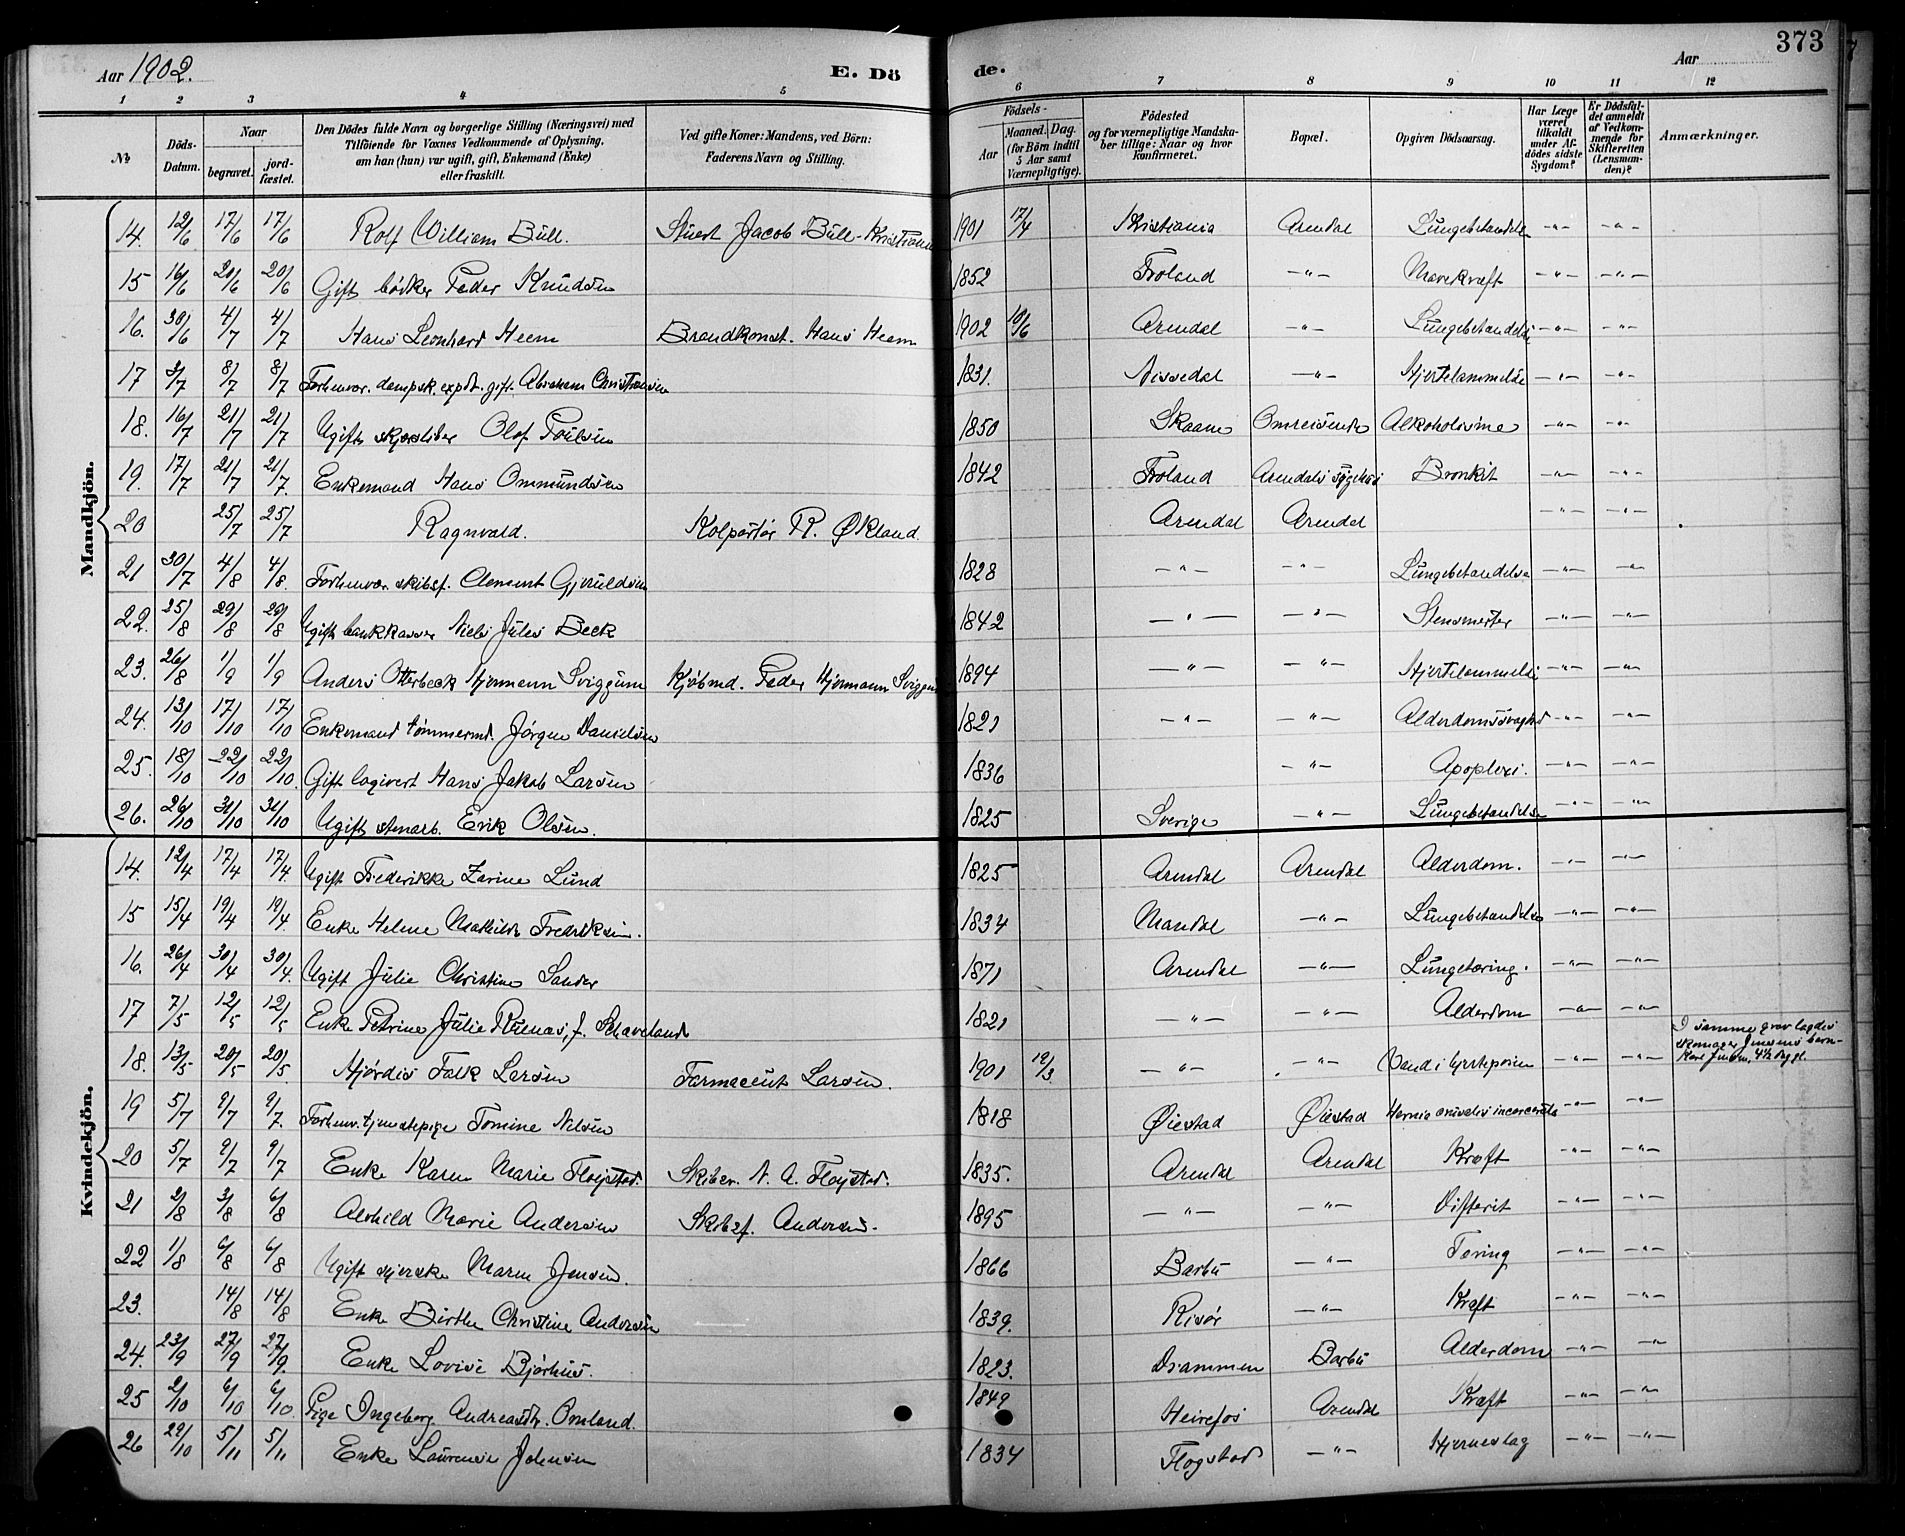 Aar 1902.
E. Dö
de.
Aar
373
1 2 3 4 5 6 7 8 9 10 11 12
No
Döds-Datum.
Naar
begravet.
jord-fæstet.
Den Dödes fulde Navn og borgerlige Stilling (Næringsvei) med
Tilföiende for Voxnes Vedkommende af Oplysning,
om han (hun) var ugift, gift, Enkemand (Enke)
eller fraskilt.
Ved gifte Koner: Mandens, ved Börn:
Faderens Navn og Stilling.
Födsels-
Aar
Maaned. Dag.
(for Börn indtil
5 Aar samt
Værnepligtige).
Födested
og for værnepligtige Mandska-
ber tillige: Naar og hvor
konfirmeret.
Bopæl.
Opgiven Dödsaarsag.
Har Læge
været
tilkaldt
under Af-
dödes sidste
Sygdom?
Er Dödsfal-
det anmeldt
af Vedkom-
mende for
Skifteretten
(Lensman-
den)?
Anmærkninger.
Mandkjön.
14. 12/6 17/6 17/6 Rolf William Bull. Stuert Jacob Bull - Kristiania 1901 17/4 Kristiania Arendal Lungebetændelse -"- -"-
15 16/6 20/6 20/6 Gift bödker Peder Knudsen 1852 Froland -"- Mavekræft -"- -"-
16. 30/6 4/7 4/7 Hans Leonhard Heem Brandkonst. Hans Heem 1902 10/6 Arendal -"- Lungebetændelse -"- -"-
17 3/7 8/7 8/7 Forhenvær. dampsk.expdt. gift. Abraham Christensen 1831. Nissedal -"- Hjertelammelse -"- -"-
18. 16/7 21/7 21/7 Ugift skjærsliber Olof Poulsen 1850 Skaane Omreisende Alkoholisme -"- -"-
19. 17/7 21/7 21/7. Enkemand Hans Ommundsen 1842 Froland Arendals sygehus Bronkit -"- -"-
20 25/7 25/7 Ragnvald. Kolportör R. Økland. Arendal Arendal -"- -"-
21 30/7 4/8 4/8. Forhenvær. skibsf. Clement Gjeruldsen 1828 -"- -"- Lungebetændelse -"- -"-
22. 25/8 29/8 29/8 Ugift bankkasser Niels Julius Beck 1842 -"- -"- Stensmerter -"- -"-
23. 26/8 1/9 1/9 Anders Otterbeck Hjermann Sviggum Kjöbmd. Peder Hjermann Sviggum 1894 -"- -"- Hjertelammelse -"- -"-
24. 13/10 17/10 17/10 Enkemand tömmermd. Jörgen Danielsen 1821 -"- -"- Alderdomssvaghed -"- -"-
25. 18/10 22/10 22/10. Gift logivert Hans Jakob Larsen 1836 -"- Apoplexi. -"- -"-
26. 26/10 31/10 31/10 Ugift stenarb. Erik Olsen. 1825 Sverige -"- Lungebetændelse -"- -"-
Kvindekjön.
14. 12/4 17/4 17/4. Ugift Frederikke Zarine Lund 1825 Arendal Arendal Alderdom. -"- -"-
15 15/4 19/4 19/4 Enke Helene Mathilde Fredriksen. 1834 Mandal -"- Lungebetændelse -"- -"-
16. 26/4 30/4 30/4. Ugift Julie Christine Sander 1871 Arendal -"- Lungetæring. -"- -"-
17 7/5 12/5 12/5 Enke Petrine Julie Ruenæs, f. Skaveland 1821 -"- -"- Alderdom -"- -"-
18. 13/5 20/5 20/5. Hjördis Falk Larsen Farmaceut Larsen. 1901 19/3 -"- -"- Vand i hjerteposen -"- -"- I samme grav lagdes
skomager Jensens barn
Karl Jensen, 4½ Aar gl.
19 5/7 9/7 9/7. Forhenv. tjenestepige Tomine Nilsen 1818 Øiestad Øiestad Hernia cruralis incarcerata -"- -"-
20 5/7 9/7 9/7 Enke Karen Marie Flöystad. Skibsr. N. A. Flöystad. 1835. Arendal Arendal Kræft -"- -"-
21 2/8 3/8 6/8 Alvhild Marie Andersen Skibsf. Andersen. 1895 -"- -"- Difterit -"- -"-
22 1/8 6/8 6/8 Ugift syerske Maren Jensen. 1866 Barbu -"- Tæring -"- -"-
23. 14/8 14/8 Enke Birthe Christine Andersen 1839. Risör -"- Kræft -"- -"-
24. 23/9 27/9 27/9. Enke Lovise Bjørhus. 1823. Drammen Barbu Alderdom -"- -"-
25 2/10 6/10 6/10. Pige Ingeborg Andreasdtr. Omland. 1849 Heirefos Arendal Kræft -"- -"-
26 29/10 5/11 5/11 Enke Laurense Johnsen 1834 Flogstad -"- Hjerneslag -"- -"-